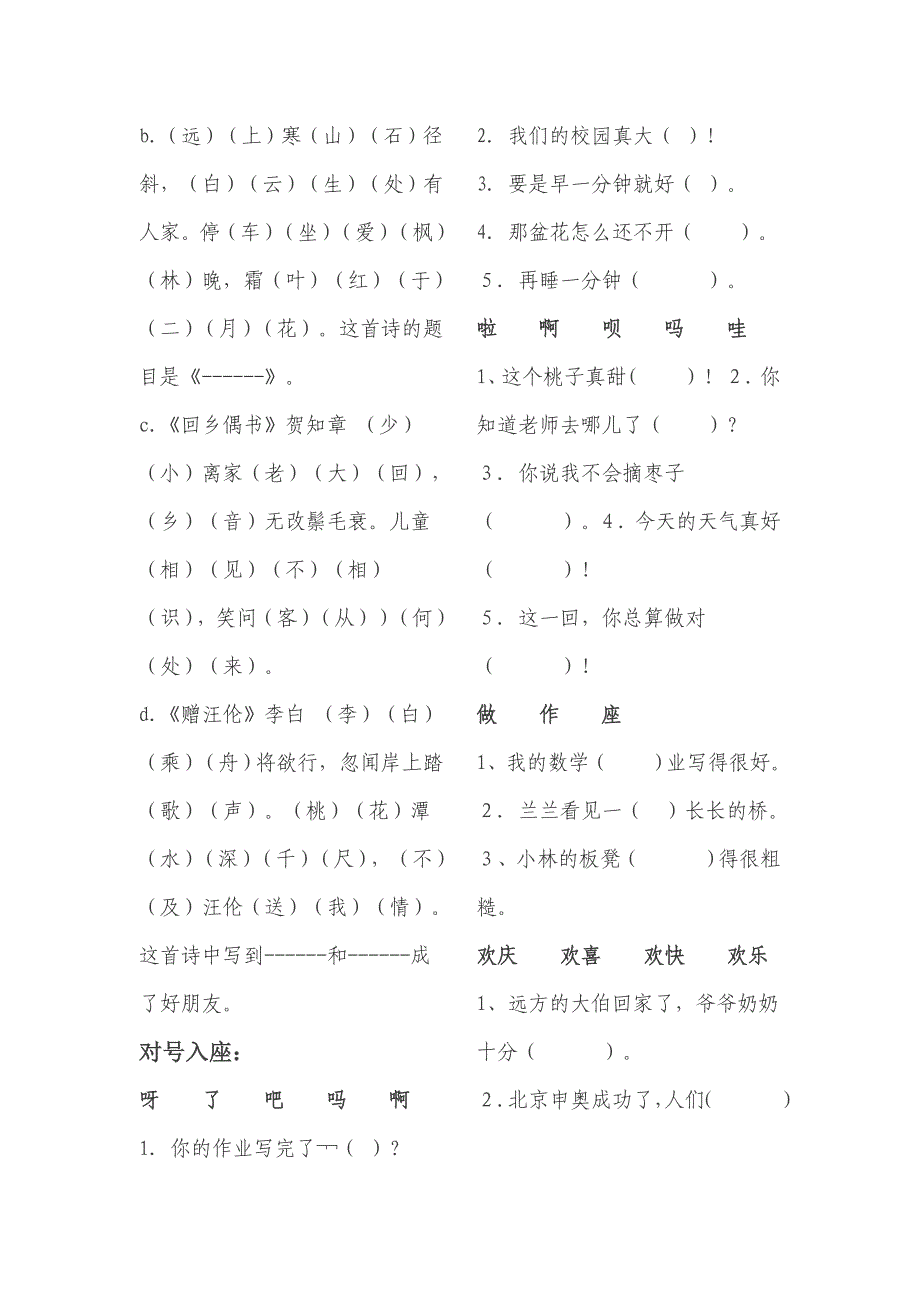 b.（远）（上）寒（山）（石）径
斜，（白）（云）（生）（处）有
人家。停（车）（坐）（爱）（枫）
（林）晚，霜（叶）（红）（于）
（二）（月）（花）。这首诗的题
目是《------》。
c.《回乡偶书》贺知章 （少）
（小）离家（老）（大）（回），
（乡）（音）无改鬃毛衰。儿童
（相）（见）（不）（相）
（识），笑问（客）（从））（何）
（处）（来）。
d.《赠汪伦》李白 （李）（白）
（乘）（舟）将欲行，忽闻岸上踏
（歌）（声）。（桃）（花）潭
（水）（深）（千）（尺），（不）
（及）汪伦（送）（我）（情）。
这首诗中写到------和------成
了好朋友。
对号入座：
呀 了 吧 吗 啊
1. 你的作业写完了（ ）？
2. 我们的校园真大（ ）！
3. 要是早一分钟就好（ ）。
4. 那盆花怎么还不开（ ）。
5. 再睡一分钟（ ）。
啦 啊 呗 吗 哇
1、这个桃子真甜（ ）！ 2.你
知道老师去哪儿了（ ）？
3. 你说我不会摘枣子
（ ）。4.今天的天气真好
（ ）！
5. 这一回，你总算做对
（ ）！
做 作 座
1、我的数学（ ）业写得很好。
2. 兰兰看见一（ ）长长的桥。
3、小林的板凳（ ）得很粗
糙。
欢庆 欢喜 欢快 欢乐
1、远方的大伯回家了，爷爷奶奶
十分（ ）。
2.北京申奥成功了,人们( )